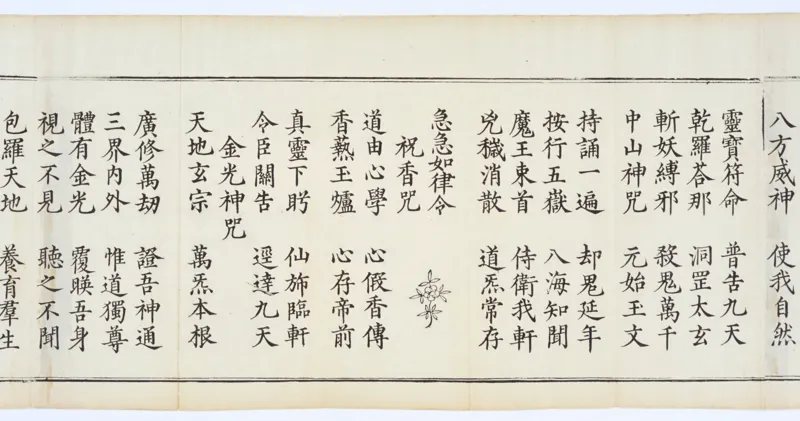 八方威神 使我自然
靈寶符命 普告九天
乾羅荅那 洞罡太玄
斬妖縛邪 殺鬼萬千
中山神咒 元始玉文
持誦一遍 却鬼延年
按行五嶽 八海知聞
魔王束首 侍衛我軒
兇穢消散 道炁常存
急急如律令
祝香咒
道由心學 心假香傳
香爇玉爐 心存帝前
真靈下盻 仙斾臨軒
令臣關告 逕達九天
金光神咒
天地玄宗 萬炁本根
廣修萬劫 證吾神通
三界內外 惟道獨尊
體有金光 覆暎吾身
視之不見 聽之不聞
包羅天地 養育羣生